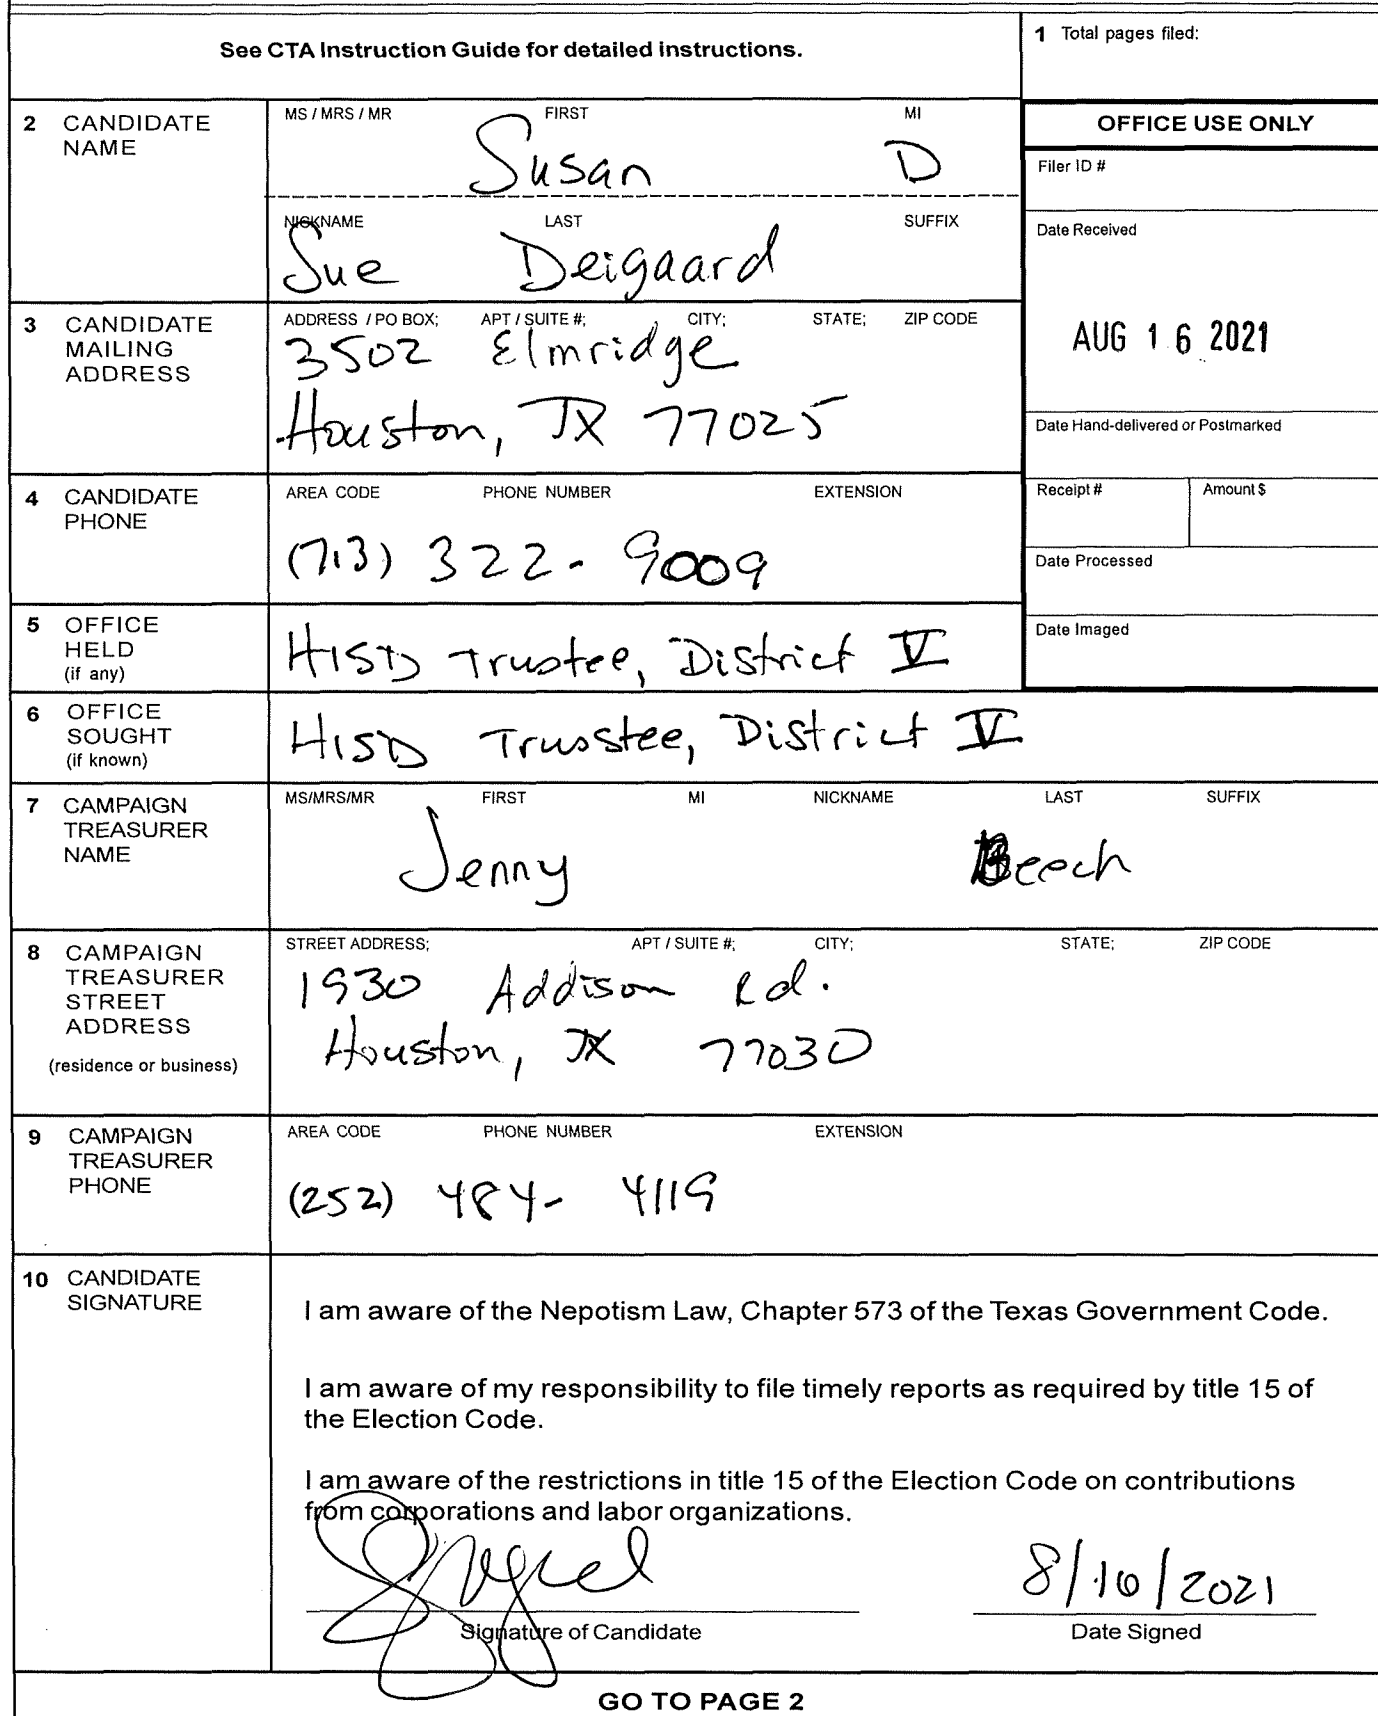 See CTA Instruction Guide for detailed instructions.
1 Total pages filed:
2 CANDIDATE NAME
MS / MRS / MR FIRST MI
Susan D
NICKNAME LAST SUFFIX
Sue Deigaard
OFFICE USE ONLY
Filer ID #
Date Received
AUG 16 2021
Date Hand-delivered or Postmarked
Receipt # Amount $
Date Processed
Date Imaged
3 CANDIDATE MAILING ADDRESS
ADDRESS / PO BOX; APT / SUITE #; CITY; STATE; ZIP CODE
3502 Elmridge
Houston, TX 77025
4 CANDIDATE PHONE
AREA CODE PHONE NUMBER EXTENSION
(713) 322-9009
5 OFFICE HELD (if any)
HISD Trustee, District V
6 OFFICE SOUGHT (if known)
HISD Trusstee, District V
7 CAMPAIGN TREASURER NAME
MS/MRS/MR FIRST MI NICKNAME LAST SUFFIX
Jenny Beech
8 CAMPAIGN TREASURER STREET ADDRESS
(residence or business)
STREET ADDRESS; APT / SUITE #; CITY; STATE; ZIP CODE
1930 Addison Rd.
Houston, TX 77030
9 CAMPAIGN TREASURER PHONE
AREA CODE PHONE NUMBER EXTENSION
(252) 484-4119
10 CANDIDATE SIGNATURE
I am aware of the Nepotism Law, Chapter 573 of the Texas Government Code.
I am aware of my responsibility to file timely reports as required by title 15 of
the Election Code.
I am aware of the restrictions in title 15 of the Election Code on contributions
from corporations and labor organizations.
8/16/2021
Signature of Candidate Date Signed
GO TO PAGE 2